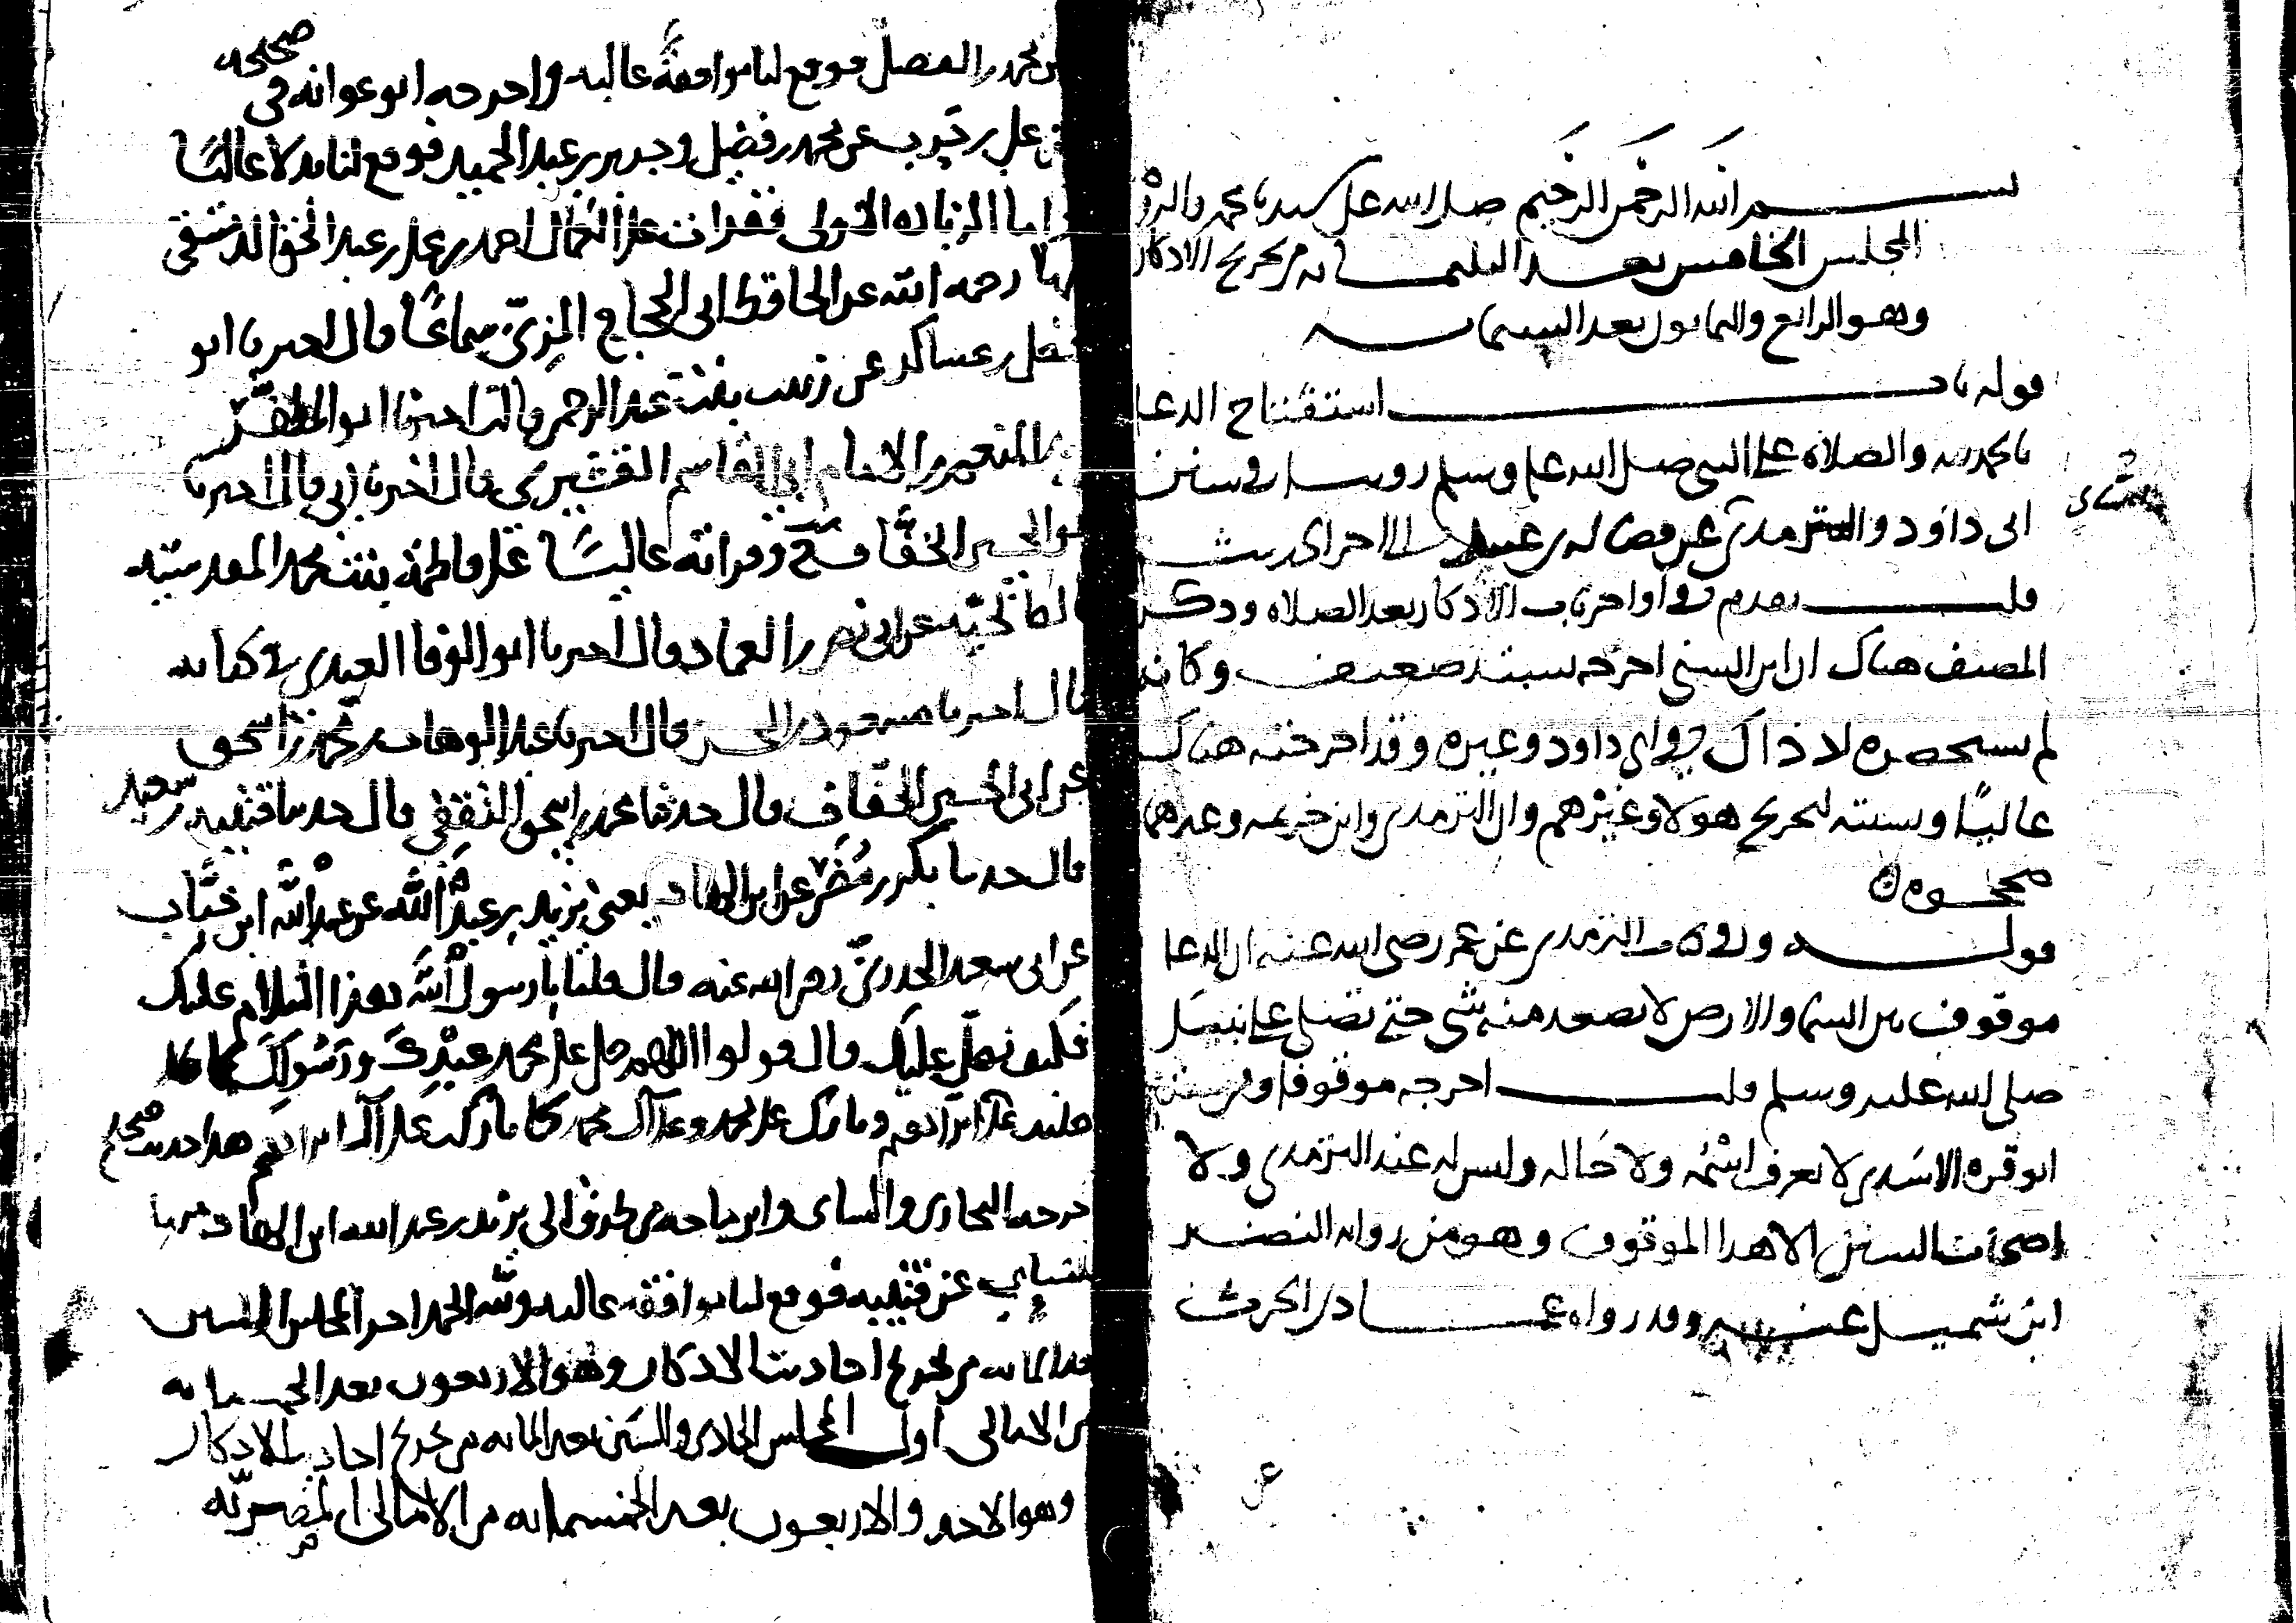 بسم الله الرحمن الرحيم صلى الله على سيدنا محمد واله
المجلس الخامس بعد الثلثمائة من تخريج الاذكار
وهو الرابع والثمانون بعد الستمائة
قوله باب استفتاح الدعا
بالحمد لله والصلاة على النبي صلى الله عليه وسلم روينا في سنن
ابي داود والترمذي عن فضالة بن عبيد الى اخر الحديث
قلت تقدم في اواخر باب الاذكار بعد الصلاة وذكر
المصنف هناك ان ابن السني اخرجه بسند ضعيف وكانه
لم يستحضره اذ ذاك في ابي داود وغيره وقد اخرجته هناك
عاليًا وبينته لتخريج هولا وغيرهم وان الترمذي وابن خزيمة وغيرهما
صححوه
قوله وروينا في الترمذي عن عمر رضي الله عنه ان الدعا
موقوف بين السما والارض لا يصعد منه شي حتى تصلي على نبيك
صلى الله عليه وسلم قلت اخرجه موقوفا وفي سنده
ابو قرة الاسدي لا يعرف اسمه ولا حاله وليس له عند الترمذي ولا
اصحاب السنن الا هذا الموقوف وهو من رواية النضر
ابن شميل عنه وقد رواه معاذ بن الحرث
عن
بن محمد بن الفضل فوقع لنا موافقة عالية واخرجه ابو عوانة في صحيحه
عن علي بن حرب عن محمد بن فضيل وجرير بن عبد الحميد فوقع لنا بدلا عاليًا
واما الزيادة الاولى فقرات على الجمال احمد بن علي بن عبد الحق الدمشقي
بها رحمه الله عن الحافظ ابي الحجاج المزي سماعًا قال اخبرنا ابو
الفضل بن عساكر عن زينب بنت عبد الرحمن قالت اخبرنا ابو المظفر
بن المنعم بن الامام ابي القاسم القشيري قال اخبرنا ابي قال اخبرنا
ابو الحسين الخفاف ح وقراته عاليًا على فاطمة بنت محمد المقدسية
بالصالحية عن ابي نصر بن العماد قال اخبرنا ابو الوفا العبدي في كتابه
قال اخبرنا مسعود بن الحسن قال اخبرنا عبد الوهاب بن محمد بن اسحق
عن ابي الحسين الخفاف قال حدثنا محمد بن اسحق الثقفي قال حدثنا قتيبة بن سعيد
قال حدثنا بكر بن مضر عن ابن الهاد يعني يزيد بن عبد الله عن عبد الله ابن خباب
عن ابي سعيد الخدري رضي الله عنه قال قلنا يا رسول الله هذا السلام عليك
فكيف نصلي عليك قال قولوا اللهم صل على محمد عبدك ورسولك كما
صليت على ابراهيم وبارك على محمد وعلى آل محمد كما باركت على آل ابراهيم هذا حديث صحيح
اخرجه البخاري والنساي وابن ماجه من طرق الى يزيد بن عبد الله ابن الهاد
النساي عن قتيبة فوقع لنا موافقة عالية ولله الحمد اخر المجلس الستين
بعد الماية من تخريج احاديث الاذكار وهو الاربعون بعد الخمسماية
من الامالي اول المجلس الحادي والستين بعد الماية من تخريج احاديث الاذكار
وهو الاحد والاربعون بعد الخمسماية من الامالي المصرية